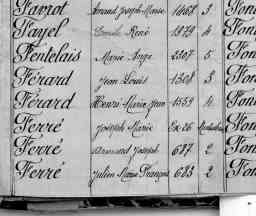 Parrot Armand Joseph Marie 1868 3 Fon
Payel Emile René 1979 4 Fon
Pentelais Marie Ange 2307 5 Fon
Pérard Jean Louis 1308 3 Fon
Pérard Henri Marie Jean 1559 4 Fon
Perré Joseph Marie 26 Fon
Perré Armand Joseph 687 2 Fon
Perré Julien Marie François 683 2 Fon